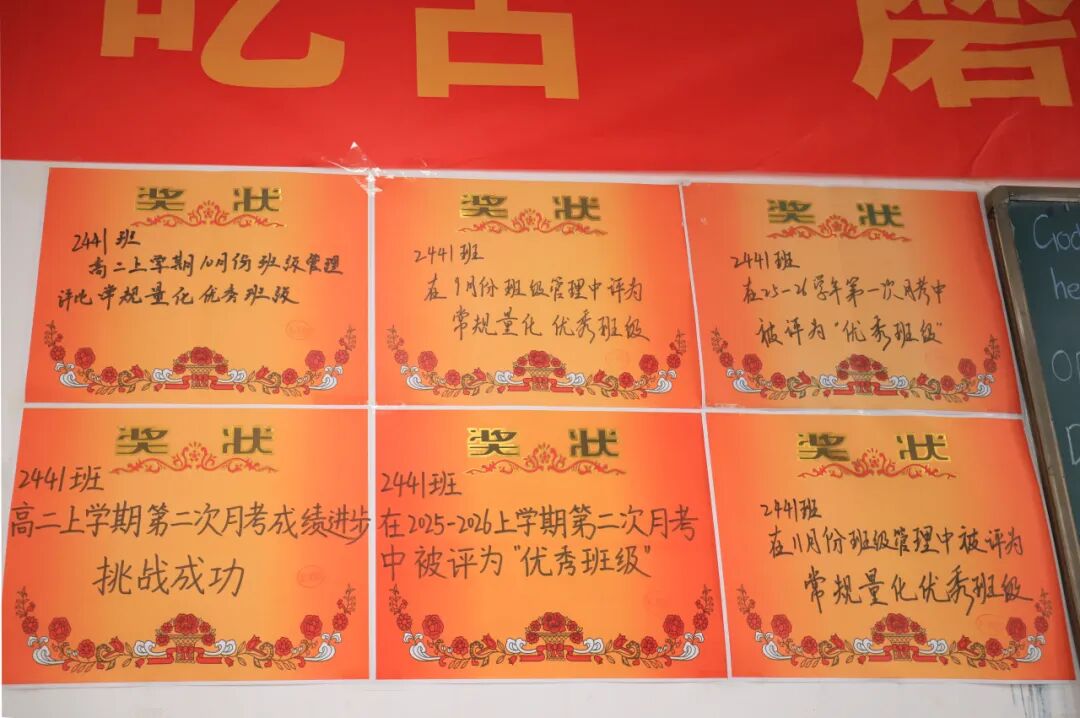 吃苦 磨
奖 状
2441班
高二上学期10月份班级管理
评比常规量化优秀班级
奖 状
2441班
在9月份班级管理中评为
常规量化优秀班级
奖 状
2441班
在25-26学年第一次月考中
被评为“优秀班级”
奖 状
2441班
高二上学期第二次月考成绩进步
挑战成功
奖 状
2441班
在2025-2026上学期第二次月考
中被评为“优秀班级”
奖 状
2441班
在11月份班级管理中被评为
常规量化优秀班级